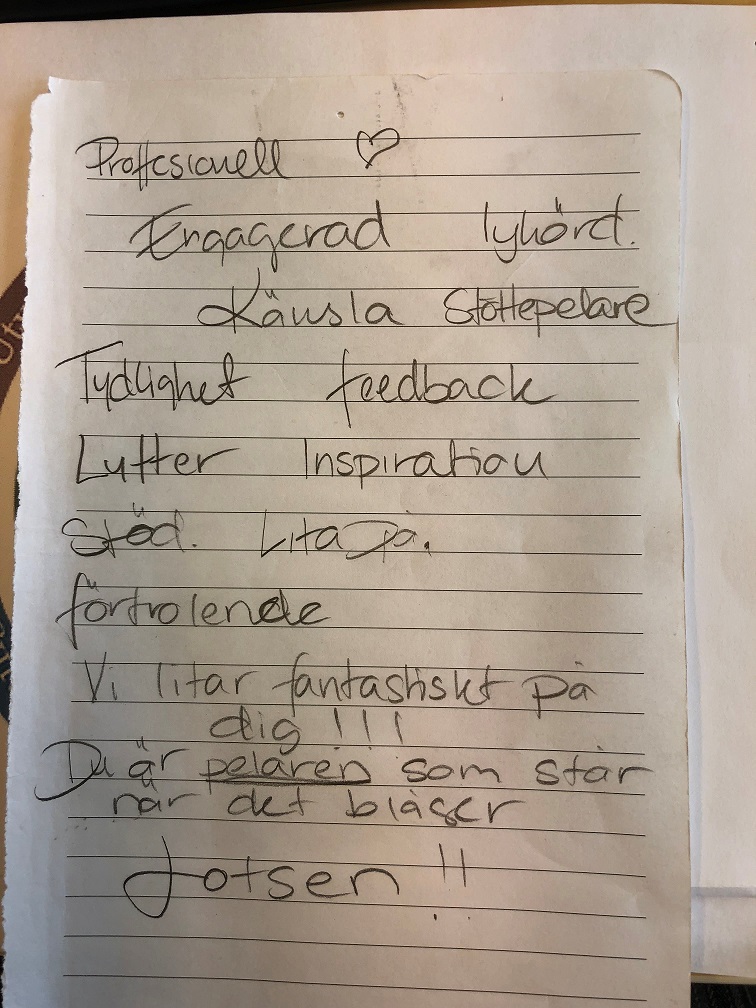 Proffesionell ♡
Engagerad lyhörd.
Känsla Stöttepelare
Tydlighet feedback
Lutter Inspiration
Stöd. Lita på.
förtrolende
Vi litar fantastiskt på
dig !!!
Du är pelaren som står
när det blåser
Jotsen !!